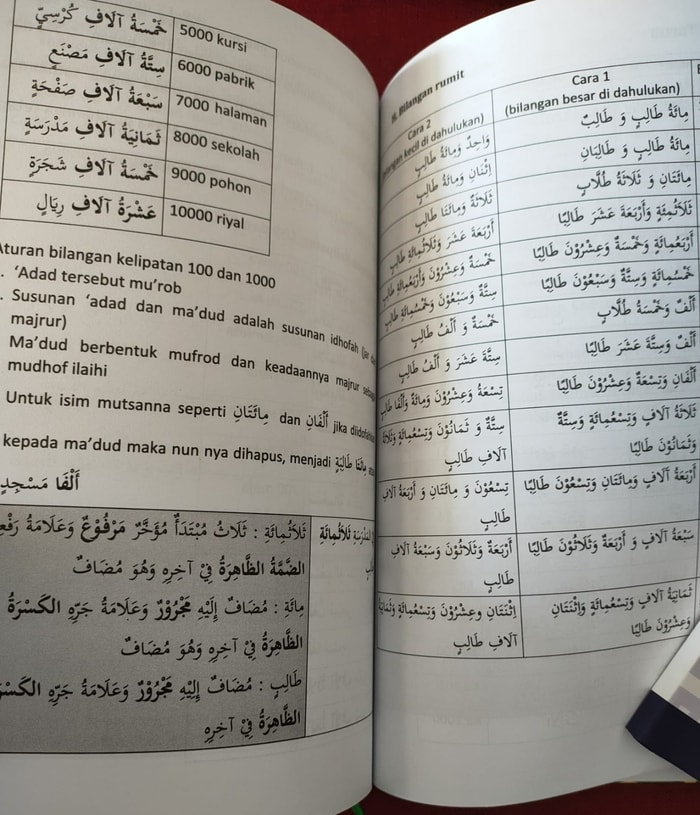 خَمْسَةُ آلَافِ كُرْسِيٍّ 5000 kursi
سِتَّةُ آلَافِ مَصْنَعٍ 6000 pabrik
سَبْعَةُ آلَافِ صَفْحَةٍ 7000 halaman
ثَمَانِيَةُ آلَافِ مَدْرَسَةٍ 8000 sekolah
خَمْسَةُ آلَافِ شَجَرَةٍ 9000 pohon
عَشْرَةُ آلَافِ رِيَالٍ 10000 riyal
Aturan bilangan kelipatan 100 dan 1000
‘Adad tersebut mu’rob
Susunan ‘adad dan ma’dud adalah susunan idhofah (jar
majrur)
Ma’dud berbentuk mufrod dan keadaannya majrur sebagai
mudhof ilaihi
Untuk isim mutsanna seperti مِائَتَانِ dan أَلْفَانِ jika diidofahkan
kepada ma’dud maka nun nya dihapus, menjadi مِائَتَا طَالِبَةٍ
أَلْفَا مَسْجِدٍ
ثَلَاثُمِائَةِ : ثَلَاثُ مُبْتَدَأٌ مُؤَخَّرٌ مَرْفُوْعٌ وَعَلَامَةُ رَفْعِ
الضَّمَّةُ الظَّاهِرَةُ فِيْ آخِرِهِ وَهُوَ مُضَافٌ
مِائَةِ : مُضَافٌ إِلَيْهِ مَجْرُوْرٌ وَعَلَامَةُ جَرِّهِ الكَسْرَةُ
الظَّاهِرَةُ فِيْ آخِرِهِ وَهُوَ مُضَافٌ
طَالِبٍ : مُضَافٌ إِلَيْهِ مَجْرُوْرٌ وَعَلَامَةُ جَرِّهِ الكَسْرَ
الظَّاهِرَةُ فِيْ آخِرِهِ
ثَلَاثُمِائَةِ
H. Bilangan rumit
Cara 1
(bilangan besar di dahulukan)
Cara 2
kecil di dahulukan)
مِائَةُ طَالِبٍ وَ طَالِبٌ
وَاحِدٌ وَمِائَةُ طَالِبٍ
مِائَةُ طَالِبٍ وَ طَالِبَانِ
اِثْنَانِ وَمِائَةُ طَالِبٍ
مِائَتَانِ وَ ثَلَاثَةُ طُلَّابٍ
ثَلَاثَةٌ وَمِائَتَا طَالِبٍ
ثَلَاثُمِئَةٍ وَأَرْبَعَةَ عَشَرَ طَالِبًا
أَرْبَعَةَ عَشَرَ وَثَلَاثُمِائَةِ طَالِبٍ
أَرْبَعُمِائَةٍ وَخَمْسَةٌ وَعِشْرُوْنَ طَالِبًا
خَمْسَةٌ وَعِشْرُوْنَ وَأَرْبَعُمِائَةِ طَالِبٍ
خَمْسُمِائَةٍ وَسِتَّةٌ وَسَبْعُوْنَ طَالِبًا
سِتَّةٌ وَسَبْعُوْنَ وَخَمْسُمِائَةِ طَالِبٍ
أَلْفٌ وَخَمْسَةُ طُلَّابٍ
خَمْسَةٌ وَ أَلْفُ طَالِبٍ
أَلْفٌ وَسِتَّةَ عَشَرَ طَالِبًا
سِتَّةَ عَشَرَ وَ أَلْفُ طَالِبٍ
أَلْفَانِ وَتِسْعَةٌ وَعِشْرُوْنَ طَالِبًا
تِسْعَةٌ وَعِشْرُوْنَ وَمِائَةٌ وَأَلْفَا طَالِبٍ
ثَلَاثَةُ آلَافٍ وَتِسْعُمِائَةٍ وَسِتَّةٌ
وَثَمَانُوْنَ طَالِبًا
سِتَّةٌ وَ ثَمَانُوْنَ وَتِسْعُمِائَةٍ وَثَلَاثَةُ
آلَافِ طَالِبٍ
أَرْبَعَةُ آلَافٍ وَمِائَتَانِ وَتِسْعُوْنَ طَالِبًا
تِسْعُوْنَ وَ مِائَتَانِ وَ أَرْبَعَةُ آلَافِ
طَالِبٍ
سَبْعَةُ آلَافٍ وَ أَرْبَعَةٌ وَثَلَاثُوْنَ طَالِبًا
أَرْبَعَةٌ وَثَلَاثُوْنَ وَسَبْعَةُ آلَافِ
طَالِبٍ
ثَمَانِيَةُ آلَافٍ وَتِسْعُمِائَةٍ وَاِثْنَتَانِ
وَعِشْرُوْنَ طَالِبًا
اِثْنَتَانِ وعِشْرُوْنَ وَتِسْعُمِائَةٍ وَثَمَانِيَةُ
آلَافِ طَالِبٍ